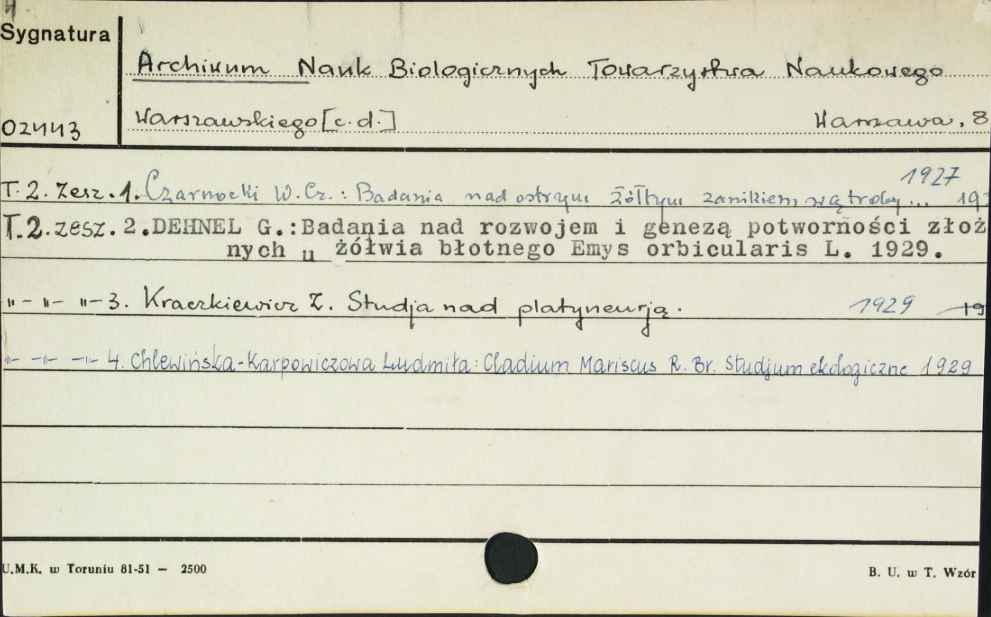 Sygnatura
Archiwum Nauk Biologicznych Towarzystwa Naukowego
02443
Warszawskiego [c.d.]
Warszawa, 8
T. 2. Zesz. 1. Czarnocki W. Cz.: Badania nad ostrym żółtym zanikiem wątroby... 1927 19
T.2.zesz. 2.DEHNEL G.:Badania nad rozwojem i genezą potworności złoż
nych u żółwia błotnego Emys orbicularis L. 1929.
"- "- "-3. Kraczkiewicz Z. Studja nad platyneurją. 1929 -19
"- -"- -"- 4. Chlewińska-Karpowiczowa Ludmiła: Cladium Mariscus R. Br. Studjum ekologiczne 1929
U.M.K. w Toruniu 81-51 — 2500
B. U. w T. Wzór